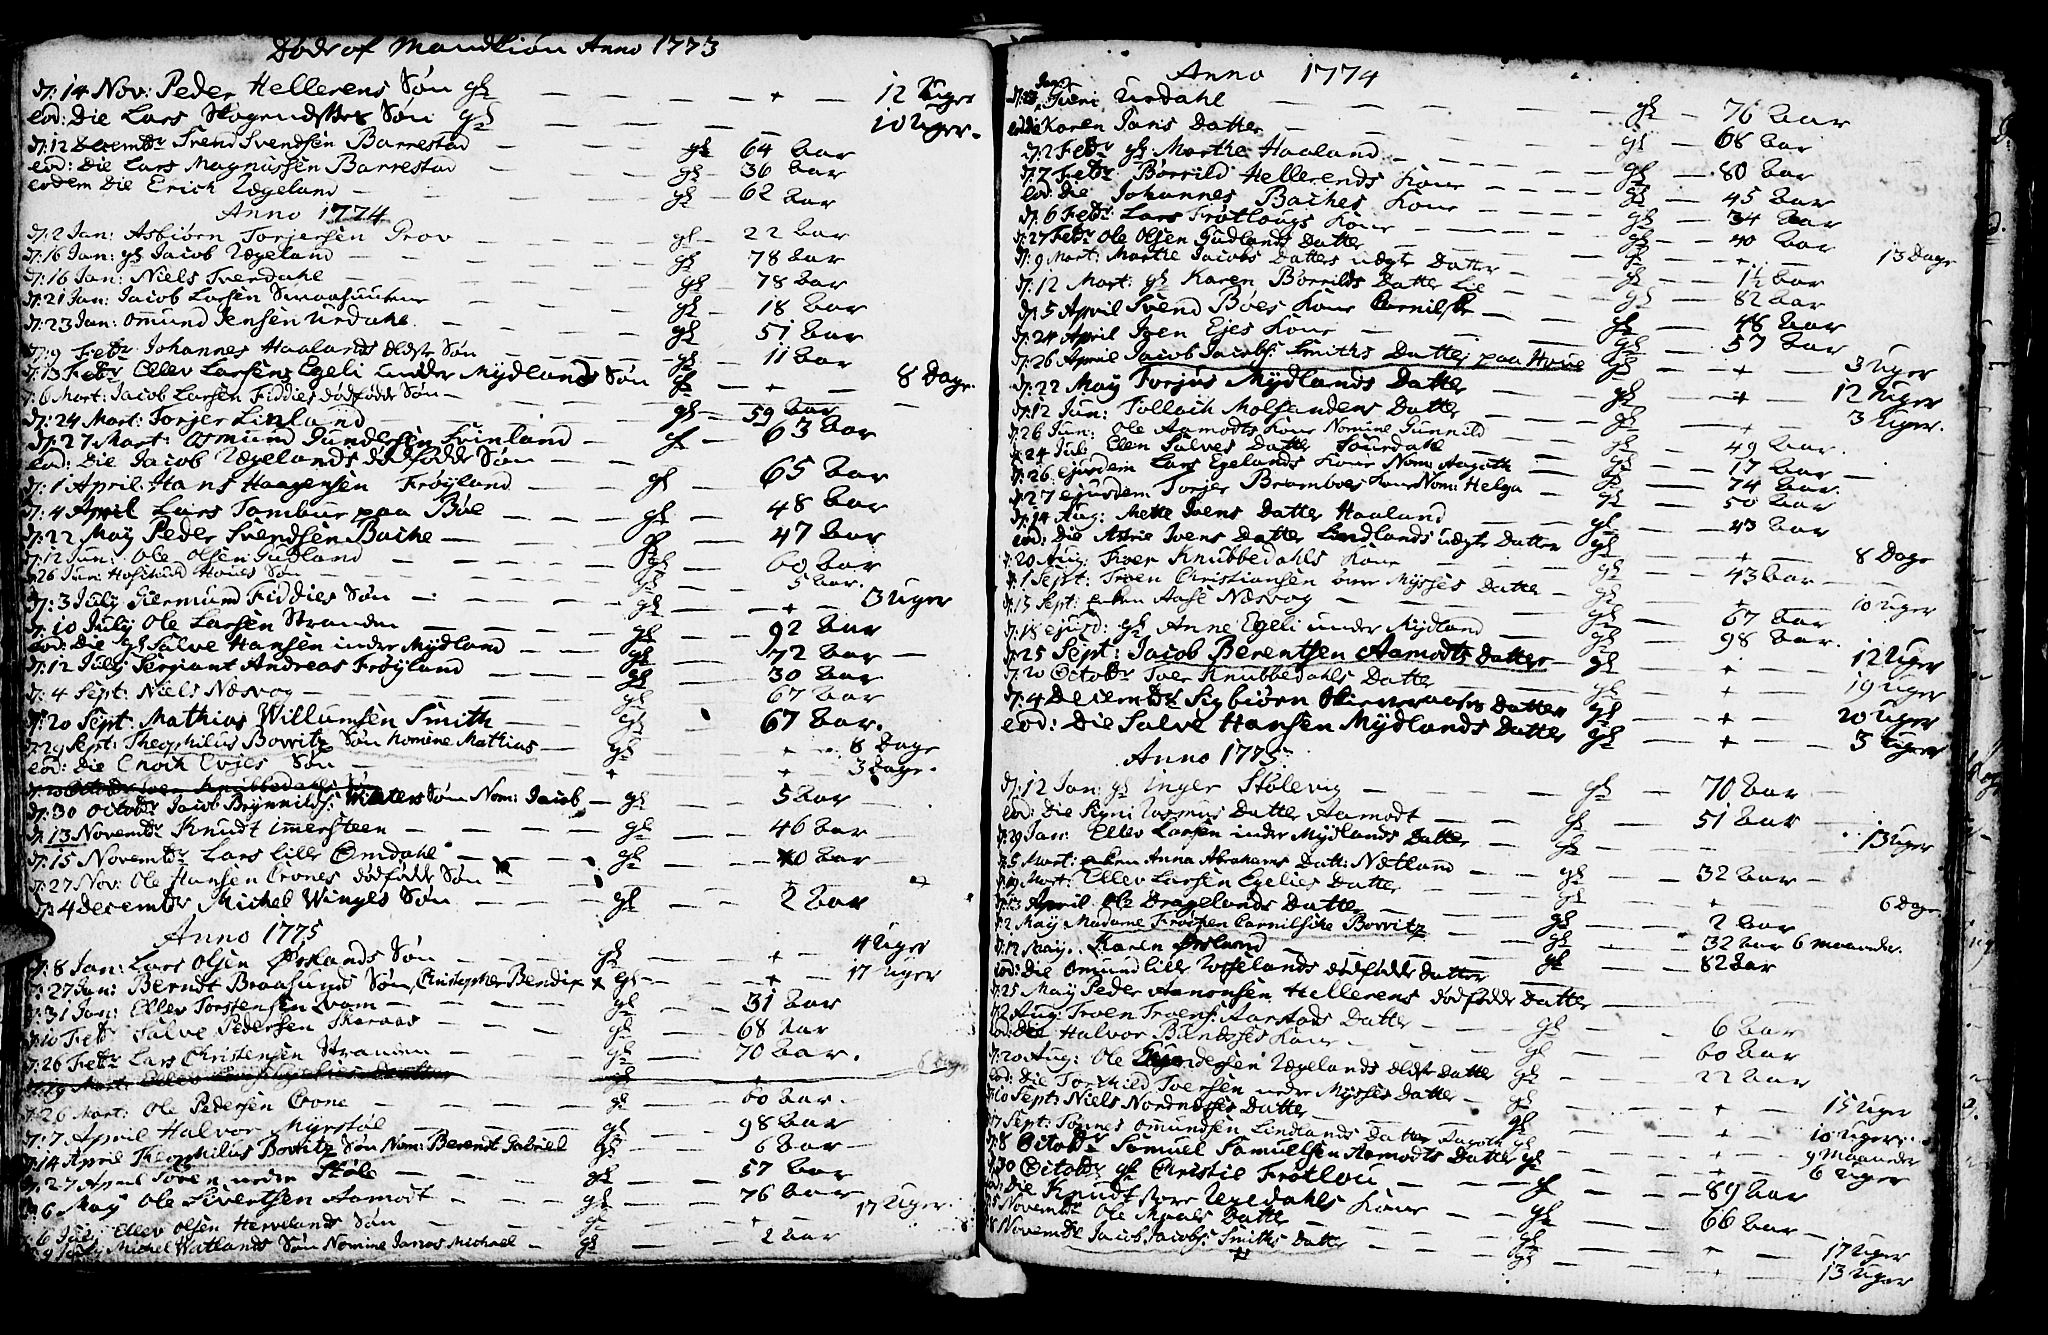 Døde of Mandkiøn Anno 1773
d: 14 Nov: Peder Hellerens Søn gl — — — — + — 12 Uger
eod: Die Lars Søn gl — — — — 10 Uger.
d: 12 Decembr Trend Svendsen Barrestad — — — gl 64 Aar
eod: Die Lars Magnussen Barrestad — — — gl 36 Aar
eodem Die Erich Ægeland — — — gl — 62 Aar
Anno 1774
d: 2 Jan: Asbiørn Torjersen Prov — — — gl — 22 Aar
d: 16 Jan: gl Jacob Ægeland — — — gl — 78 Aar
d: 16 Jan: Niels Tverdahl — — — gl — 78 Aar
d: 21 Jan: Jacob Larsen — — gl — 18 Aar
d: 23 Jan: Omund Jensen Urdahl — — gl — 51 Aar
d: 9 Febr Johannes Haalands ældste Søn — — gl — 11 Aar
d: 13 Febr Ellev Larsens Egeli under Mydlands Søn gl — + — 8 Dage.
d: 6 Mart: Jacob Larsen Fiddies dødfødde Søn — — — —
d: 24 Mart: Torjer Linland — — — gl — 59 Aar
d: 27 Mart: Osmund Gundersen Frinland — gl — 63 Aar
eod: Die Jacob Ægelands dødfødde Søn — —
d: 1 April: Hans Haagensen Frøyland — — gl — 65 Aar
d: 4 April Lars Tambur paa Bøe — — — gl — 48 Aar
d: 22 May Peder Svendsen Bache — — — gl — 47 Aar
d: 12 Jun: Ole Olsen Gudland — — — gl — 60 Aar
26 Jun: Hoves Søn — — — gl — 5 Aar.
d: 3 July Giermund Fiddies Søn — — gl — + — 3 Uger
d: 10 July Ole Larsen Stranden — — gl — 92 Aar
eod: Die gl Salve Hansen under Mydland — — gl — 72 Aar —
d: 12 July Sergiant Andreas Frøyland — — gl — 30 Aar
d: 4 Sept: Niels Næsvog — — — gl — 67 Aar
d: 20 Sept: Mathias Willumsen Smith — — gl — 67 Aar.
d: 29 Sept: Theophilus Bowitz Søn Nomine Mattias — gl — + 8 Dage
eod: Die Enoch Evjes Søn — — — + — + — 3 Dage.
d: 30 Octobr Jacob Brynnilds: Søn Nom: Jacob — gl — 5 Aar
d: 13 Novembr Knudt Immersteen — — — gl — 46 Aar
d: 15 Novembr Lars Lille Omdahl — — gl — 40 Aar
d: 27 Nov: Ole Hansen Crones dødfødde Søn — — — —
d: 4 decembr Michel Winges Søn — — gl — 2 Aar
Anno 1775
d: 8 Jan: Lars Olsen Ørslands Søn — — gl — + — 4 Uger
d: 27 Jan: Berndt Braasunds Søn, Christopher Bendix + gl — + — 17 Uger
d: 31 Jan: Ellev Torstensen Qvam — — gl — 31 Aar
d: 10 Febr Salve Pedersen Skaraas — — gl — 68 Aar
d: 26 Febr Lars Christensen Stranden — — gl — 70 Aar.
d: 26 Mart: Ole Pedersen Crone — — — gl — 60 Aar.
d: 7 April Halvor Myrstøl — — — gl — 98 Aar
d: 14 April Theophilus Bowitz Søn Nom: Berendt Gabriel gl — 6 Aar
d: 27 April Toven nedre Støle — — — gl — 57 Aar
d: 6 May Ole Sivertsen Aamodt — — gl — 76 Aar
6 July Ellev Olsen Hervelands Søn — — gl — + — 17 Uger.
Michel Watlands Søn Nomine Janos Michael — gl — 2 Aar
Anno 1774
d: 23 Jan: Urdahl — — — gl — 76 Aar
eod: Die Karen Jans Datter — — — gl — 68 Aar
d: 2 Febr gl Marthe Haaland — — — gl — 80 Aar
d: 7 Febr Børrild Hellerends Kone — — gl — 45 Aar
eod: Die Johannes Baches Kone — — gl — 34 Aar
d: 6 Febr: Lars Frøtlougs Kone — — gl — 40 Aar
d: 27 Febr Ole Olsen Gudlands Datter — — gl — + — 13 Dage
d: 9 Mart: Marthe Jacobs Datters uægte Datter — gl — 1½ Aar
d: 12 Mart: gl Karen Børrilds Datter Lie — — gl — 82 Aar
d: 5 April Svend Bøes Kone — — gl — 48 Aar
d: 24 April Iven Ejes Kone — — gl — 57 Aar
d: 26 April Jacob Jacobs: Smiths Datter paa Hove gl — + — 3 Uger
d: 22 May Torjus Mydlands Datter — gl — + — 12 Uger
d: 12 Jun: Tollach Molsandens Datter — gl — + — 3 Uger.
d: 26 Jun: Ole Aamodts Kone Nomine Gunnild — gl — 49 Aar.
d: 24 Jul: Elen Salves Datter — gl — 17 Aar
d: 26 ejusdem Lars Egelands Kone Nom: Aagoth — gl — 74 Aar.
d: 27 ejusdem Torjer Bramboes Kone Nom: Helga — gl — 50 Aar
d: 14 Aug: Mette Ivens Datter Haaland — gl — 43 Aar
eod: Die Astrie Ivens Datter Lindlands uægte Datter gl — + — 8 Dage
d: 20 Aug: Tver Knubbedahls Kone — gl — 43 Aar
d: 1 Sept: Troen Christiansen øvre Mysses Datter — gl — + — 10 Uger
d: 15 Sept: enken Aase Næsvog — — gl — 67 Aar
d: 18 ejusd: gl Anne Egeli under Mydland — gl — 98 Aar.
d: 25 Sept: Jacob Berentsen Aamodts Datter — gl — + — 12 Uger
d: 20 Octobr Tver Knubbedahls Datter — gl — + — 19 Uger
d: 4 Decembr Sigbiørn Datter gl — + — 20 Uger
eod: Die Salve Hansen Mydlands Datter gl — + — 3 Uger
Anno 1775
d: 12 Jan: gl Inger Stølevig — — gl — 70 Aar
eod: Die Signi Rasmus Datter Aamodt — gl — 51 Aar
d: 29 Jan: Ellev Larsen under Mydlands Datter — gl — — 13 Uger
d: 5 Mart: enken Anna Abrahams Datt: Nætland — gl — 32 Aar
d: 19 Mart: Ellev Larsen Egelies Datter — gl — + — 6 Dage
d: 13 April Ole Dragelands Datter — gl — 2 Aar
d: 2 May Madame Bowitz — gl — 32 Aar 6 maaneder.
d: 12 May: Karen Ørsland — gl — 82 Aar
eod: Die Omund lille dødfødde Datter — —
d: 25 May Peder Aanonsen Hellerens dødfødde Datter — —
d: 2 Aug: Troen Troens: Aarstads Datter — gl — 6 Aar
eod: Die Halvor Kone — gl — 60 Aar
d: 20 Aug: Ole Ægelands ældste Datter gl — 22 Aar
eod: Die Torkild Iversen nedre Mysses Datter — gl — + — 15 Uger
d: 10 Sept: Niels Datter — gl — + — 10 Uger
17 Sept: Tønnes Omundsen Lindlands Datter Aagoth gl — + — 9 Maaneder
d: 8 Octobr Samuel Samuelsen Aamodts Datter gl — + — 6 Uger
d: 30 Octobr gl Christie Frøtlou — gl — 89 Aar
eod: Die Knudt store Kone — gl — 66 Aar —
5 Novembr Ole Datter — gl — + — 17 Uger
8 Novembr Jacob Jacobs: Smiths Datter — gl — + — 13 Uger